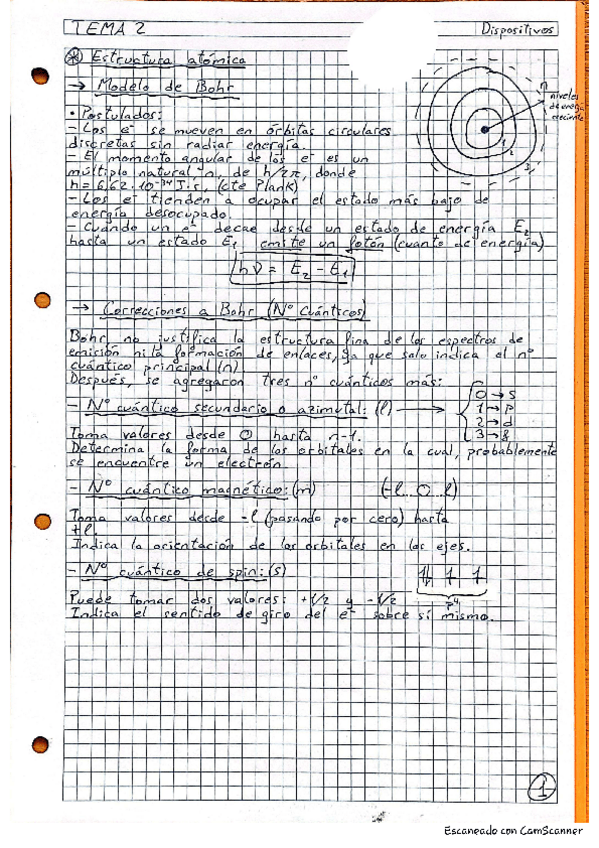 TEMA 2
Dispositivos
* Estructura atómica
→ Modelo de Bohr
niveles
de energía
creciente
1
2
3
• Postulados:
- Los e⁻ se mueven en órbitas circulares
discretas sin radiar energía.
- El momento angular de los e⁻ es un
múltiplo natural -n, de h/2π, donde
h = 6,62·10⁻³⁴ J·s, (cte Plank)
- Los e⁻ tienden a ocupar el estado más bajo de
energía desocupado.
- Cuando un e⁻ decae desde un estado de energía E₂
hasta un estado E₁ emite un fotón (cuanto de energía)
hν = E₂ - E₁
→ Correcciones a Bohr (Nº Cuánticos)
Bohr no justifica la estructura fina de los espectros de
emisión ni la formación de enlaces, ya que solo indica el nº
cuántico principal (n)
Después, se agregaron tres nº cuánticos más:
- Nº cuántico secundario o azimutal: (l) →
0 → s
1 → p
2 → d
3 → f
Toma valores desde 0 hasta n-1.
Determina la forma de los orbitales en la cual, probablemente
se encuentre un electrón
- Nº cuántico magnético: (m) (-l...0...l)
Toma valores desde -l (pasando por cero) hasta
+l.
Indica la orientación de los orbitales en los ejes.
- Nº cuántico de spin: (s)
p⁴
Puede tomar dos valores: +1/2 y -1/2
Indica el sentido de giro del e⁻ sobre sí mismo.
1
Escaneado con CamScanner